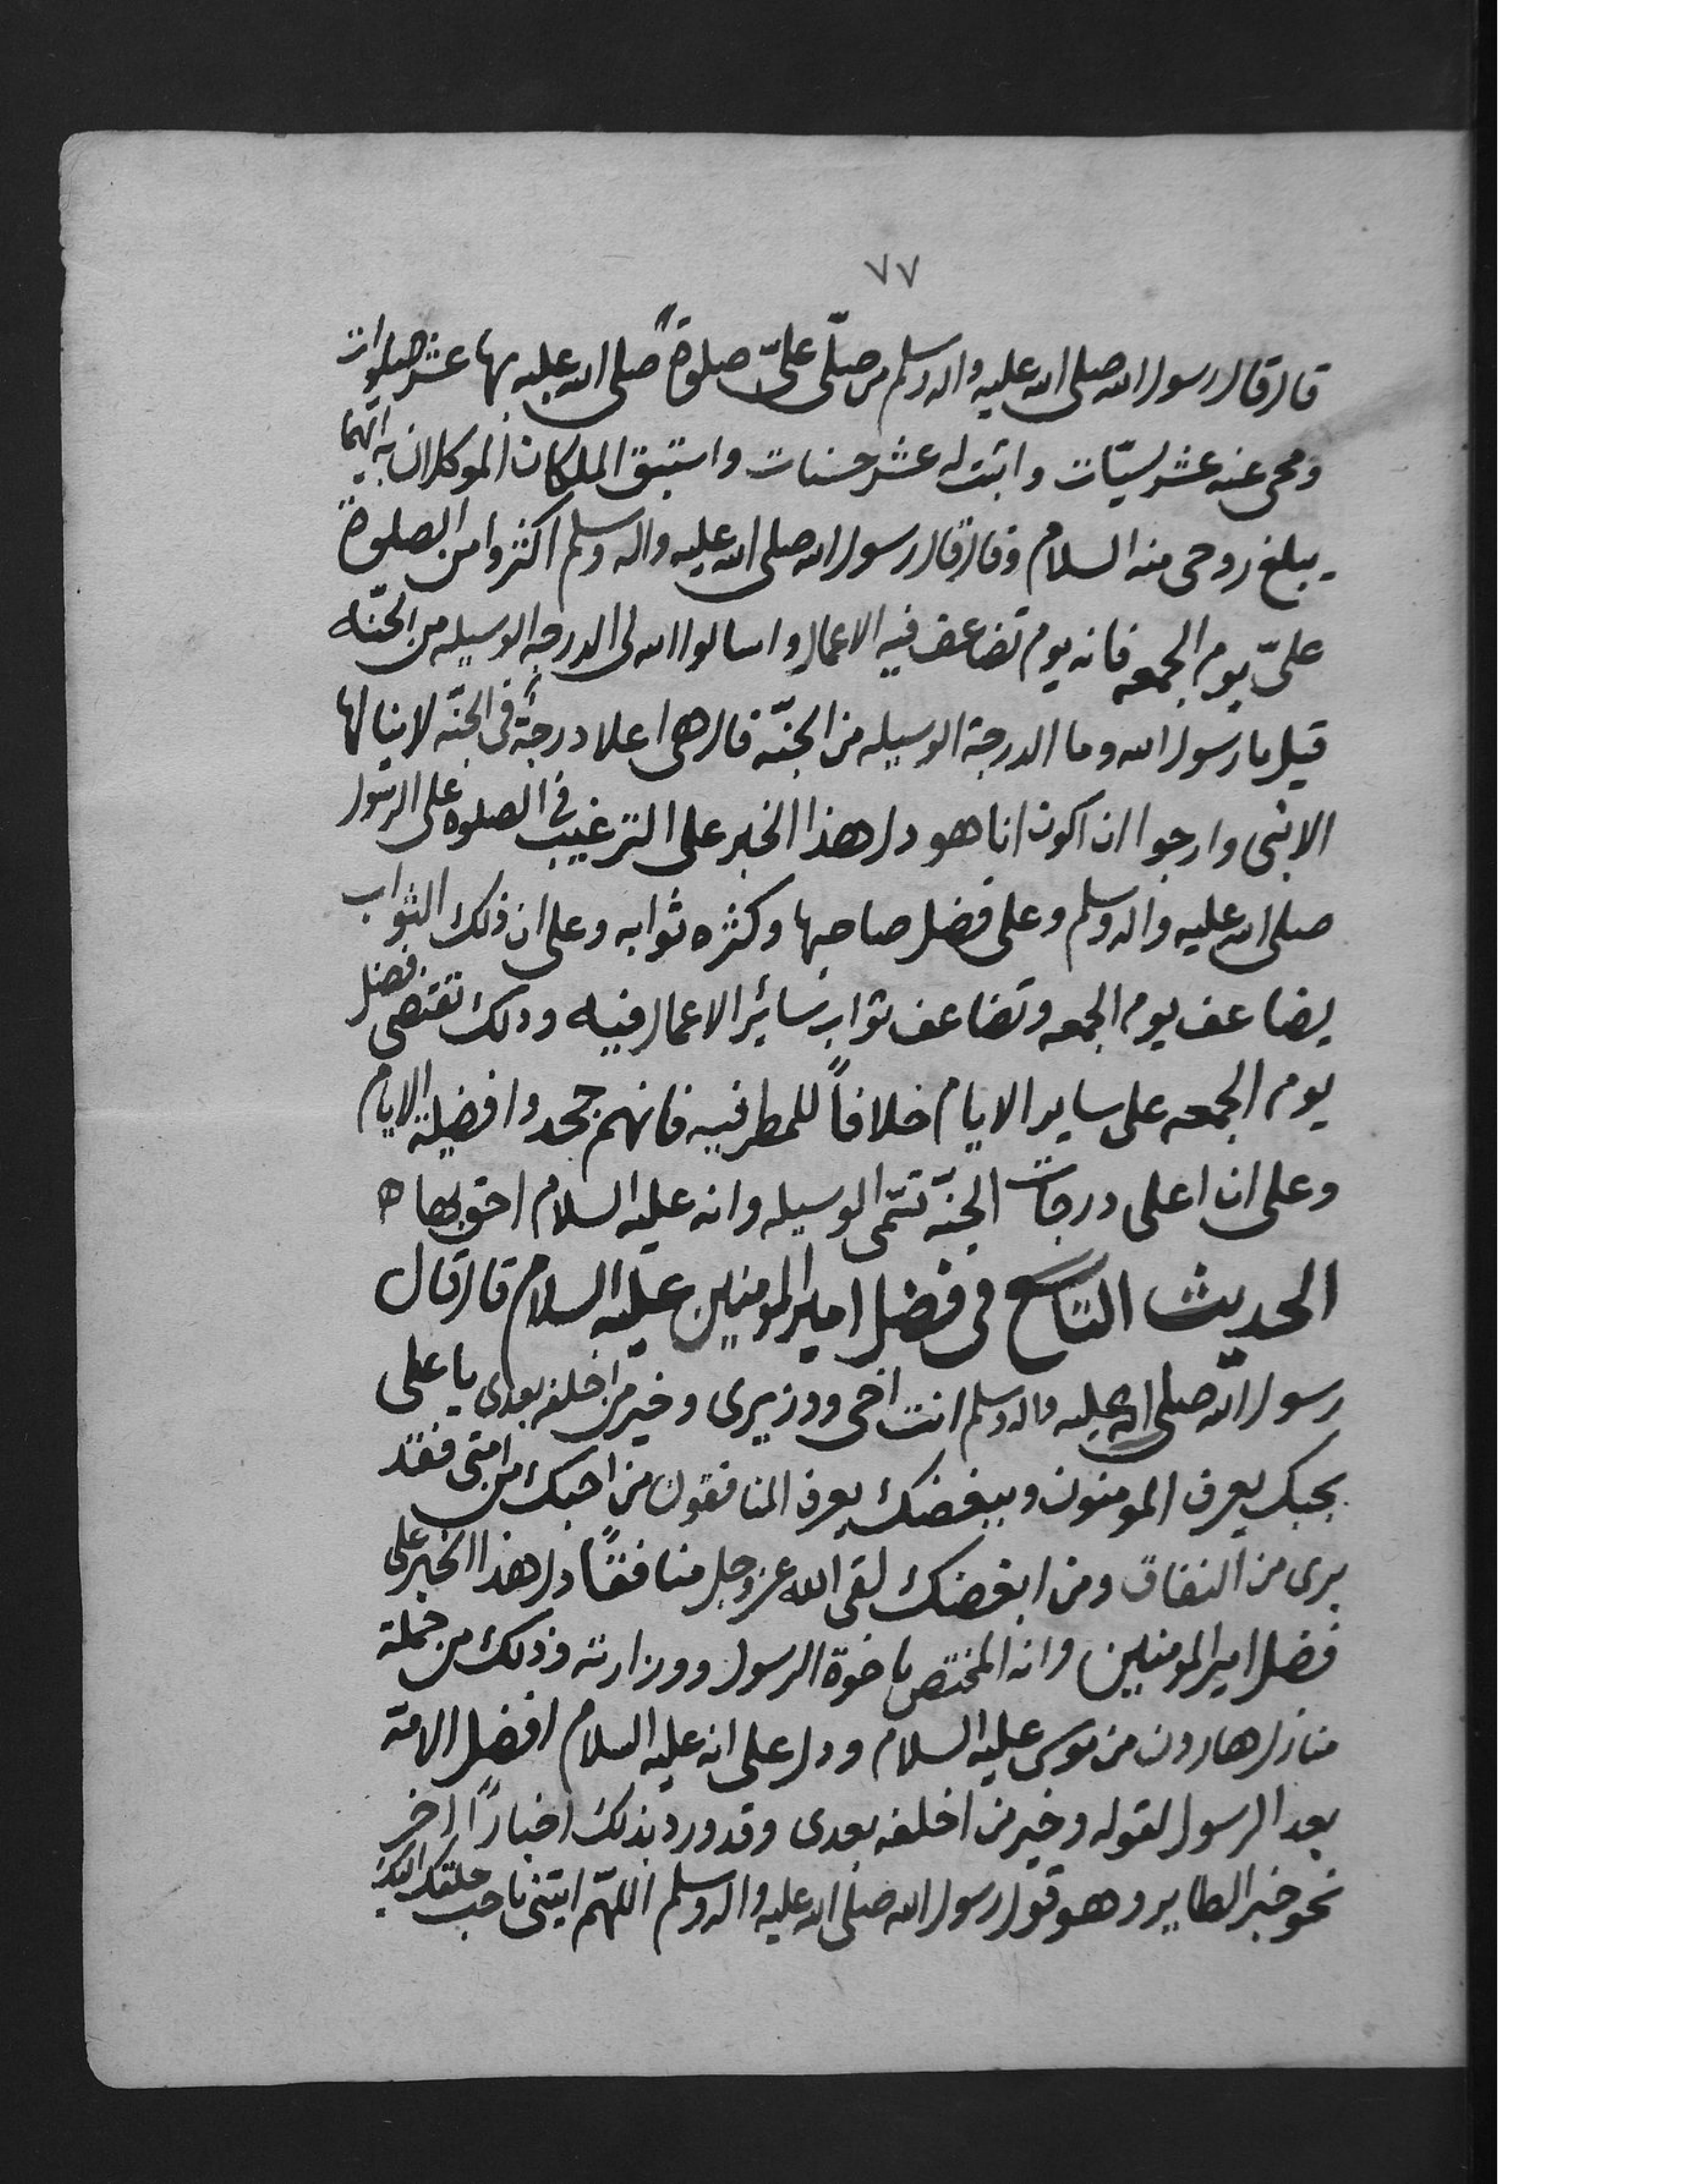 ٧٧
قال قال رسول الله صلى الله عليه واله وسلم من صلّى علىّ صلوةً صلى الله عليه بها عشر صلوات
ومحى عنه عشر سيّات واثبت له عشر حسنات واستبق الملكان الموكلان به ايّهما
يبلغ روحى منه السلام وقال قال رسول الله صلى الله عليه واله وسلم اكثروا من الصلوة
علىّ يوم الجمعه فانه يوم تضاعف فيه الاعمال واسالوا الله لى الدرجه الوسيله من الجنّه
قيل يا رسول الله وما الدرجة الوسيله من الجنّه قال هى اعلا درجةً فى الجنّه لا ينالها
الا نبى وارجوا ان اكون انا هو دل هذا الخبر على الترغيب فى الصلوه على الرسول
صلى الله عليه واله وسلم وعلى فضل صاحبها وكثره ثوابه وعلى ان ذلك الثواب
يضاعف يوم الجمعه وتضاعف ثواب سائر الاعمال فيه وذلك تقتضى فضل
يوم الجمعه على ساير الايام خلافاً للمطرفيه فانهم جحدوا فضيلة الايام
وعلى ان اعلى درجات الجنّه تسمّى الوسيله وانه عليه السلام احق بها ه
الحديث التاسع فى فضل امير المومنين عليه السلام قال قال
رسول الله صلى الله عليه واله وسلم انت اخى ووزيرى وخير من اخلفه بعدى يا على
بحبك يعرف المومنون وببغضك يعرف المنافقون من احبك من امتى فقد
برى من النفاق ومن ابغضك لقى الله عز وجل منافقًا دل هذا الخبر على
فضل امير المومنين وانه المختص باخوة الرسول ووزارته وذلك من جملة
منازل هارون من موسى عليه السلام ودل على انه عليه السلام افضل الامة
بعد الرسول لقوله وخير من اخلفه بعدى وقد ورد بذلك اخبارًا اخر
نحو خبر الطاير وهو قول رسول الله صلى الله عليه واله وسلم اللهمّ ايتنى باحب خلقك اليك